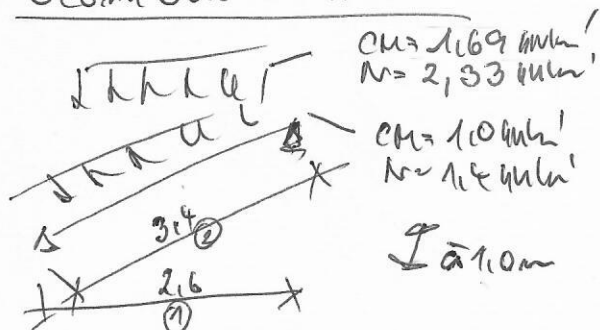 CM= 1,69 kN/m'
N= 2,33 kN/m'
CM= 1,0 kN/m'
N= 1,4 kN/m'
3,4 ②
I à 1,0m
2,6
①